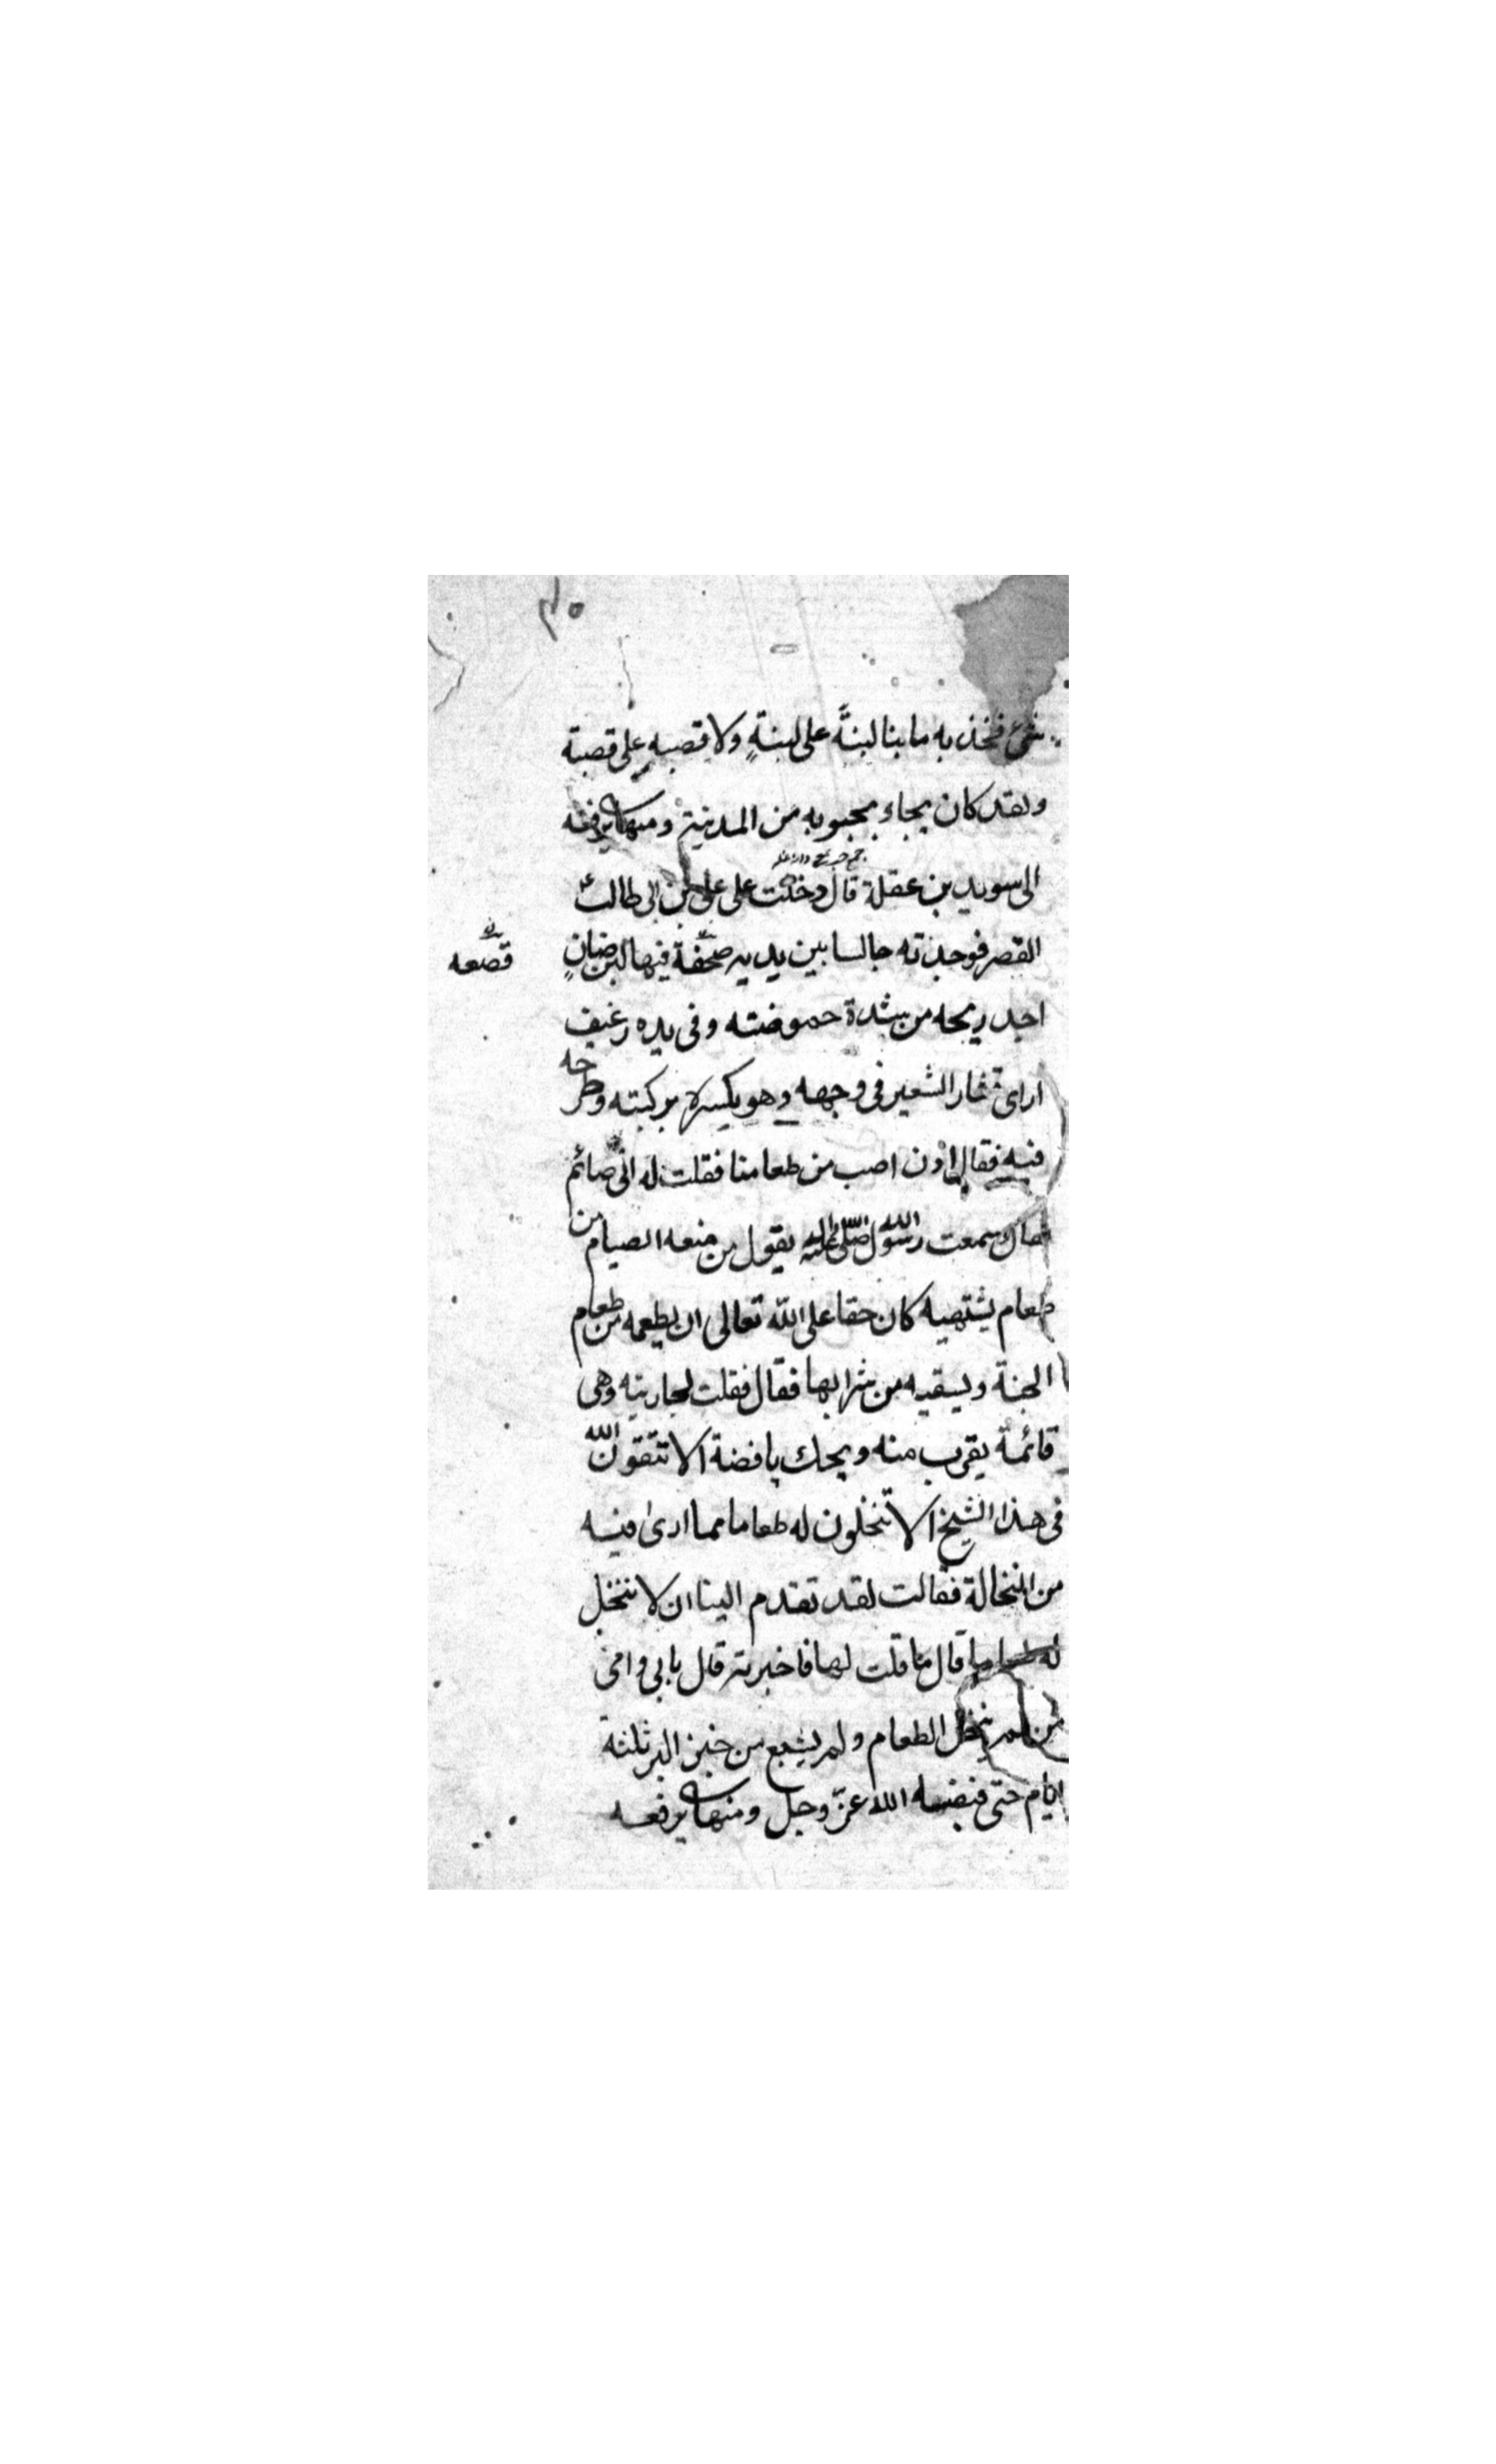 شئ فخذ به ما بنا لبنةً على لبنةٍ ولا قصبه على قصبة
ولقد كان يجاء بجبوبه من المدينة ومنها يرفعه
الى سويد بن عقلة قال دخلت على على بن ابى طالب
القصر فوجدته جالسا بين يديه صحفة فيها لبن ضانٍ
قصعه
اجد ريحه من شدة حموضته وفى يده رغيف
ارى ثار الشعير فى وجهه وهو يكسره بركبته وطرحه
فيه فقال ادن اصب من طعامنا فقلت له انى صائم
فقال سمعت رسول الله صلى الله عليه يقول من منعه الصيام من
طعام يشتهيه كان حقا على الله تعالى ان يطعمه من طعام
الجنة ويسقيه من شرابها فقال فقلت لجاريته وهى
قائمة يقرب منه ويحك يا فضة الا تتقون الله
فى هذا الشيخ الا تنخلون له طعاما مما ارى فيه
من النخالة فقالت لقد تقدم الينا ان لا ننخل
له طعاما قال ما قلت لها فاخبرته قال بابى وامى
من لم ينخل الطعام ولم يشبع من خبز البر ثلثة
ايام حتى قبضه الله عزّ وجل ومنها يرفعه